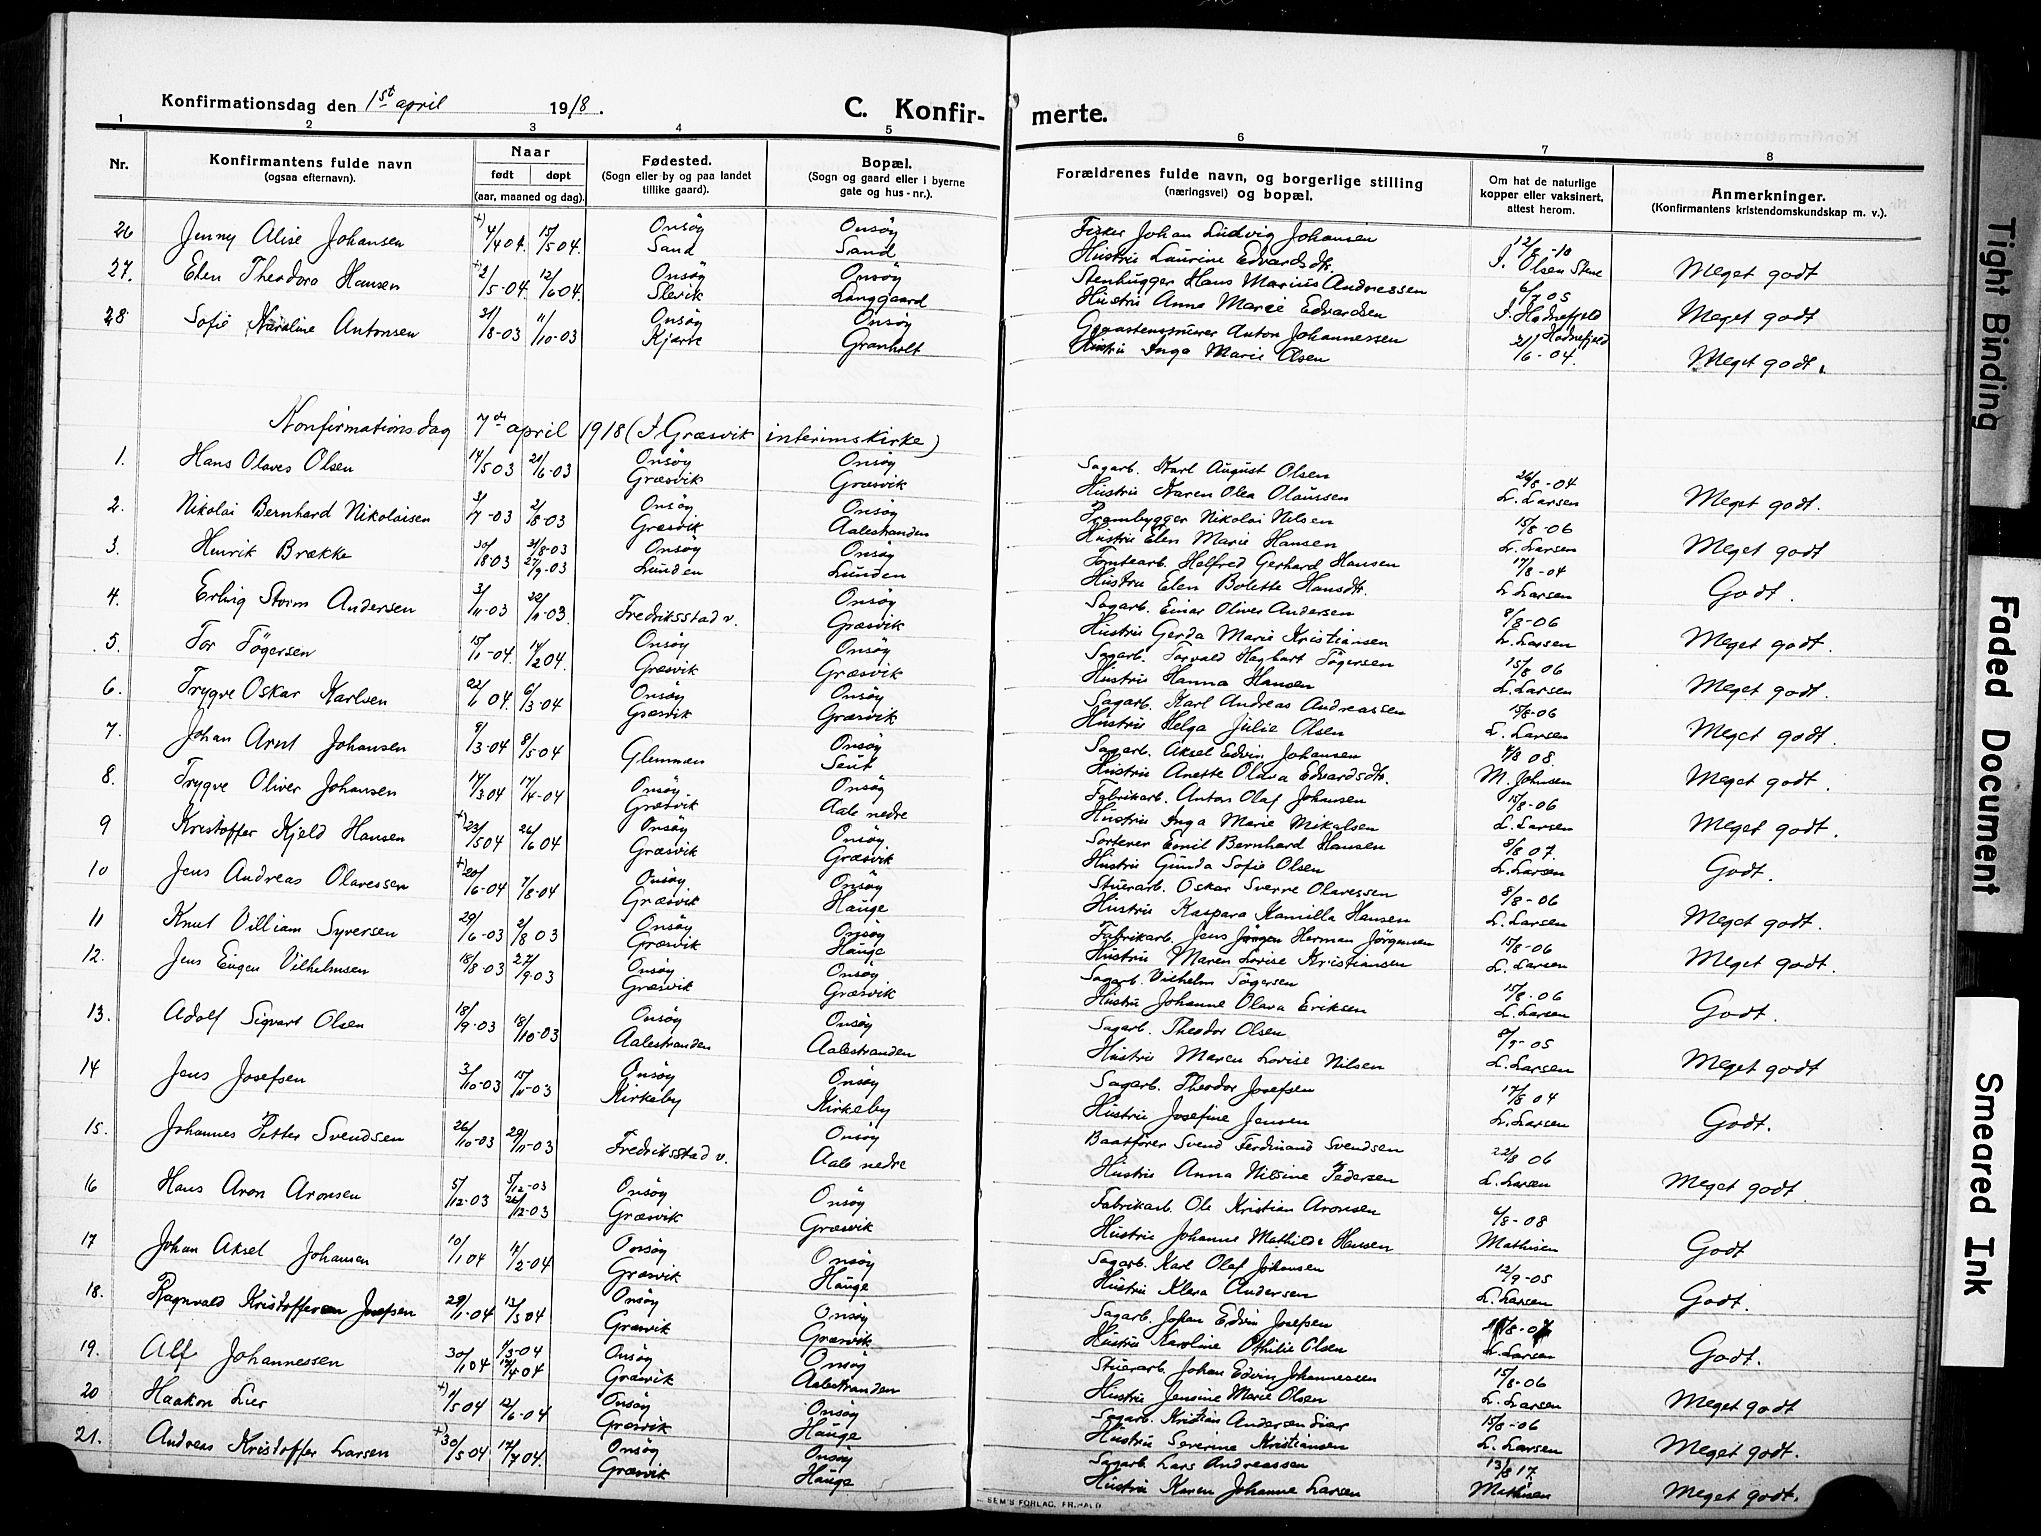 Konfirmationsdag den 1st april 1918.
C. Konfir- merte.
1 2 3 4 5 6 7 8
Nr.
Konfirmantens fulde navn
(ogsaa efternavn).
Naar
født døpt
(aar, maaned og dag).
Fødested.
(Sogn eller by og paa landet
tillike gaard).
Bopæl.
(Sogn og gaard eller i byerne
gate og hus-nr.).
Forældrenes fulde navn, og borgerlige stilling
(næringsvei) og bopæl.
Om hat de naturlige
kopper eller vaksinert,
attest herom.
Anmerkninger.
(Konfirmantens kristendomskundskap m. v.).
26 Jenny Alise Johansen +) 4/4 04. 15/5 04. Onsøy Sand Onsøy Sand Fisker Johan Ludvig Johansen
Hustru Laurine Edvardsdtr. 12/8-10 J. Olsen Stene Meget godt
27. Elen Theodora Hansen +) 2/5-04. 12/6 04. Onsøy Slevik Onsøy Langgaard Stenhugger Hans Marius Andreassen
Hustru Anna Marie Edvardsen 6/7 05 J. Hodnefjeld Meget godt
28 Sofie Karoline Antonsen 31/8-03 11/10-03 Onsøy Kjærre Onsøy Granholt Graastensmurer Anton Johannessen
Hustru Inga Marie Olsen Hodnefjeld 21/6-04. Meget godt.
Konfirmationsdag 7de april 1918 (I Græsvik interimskirke)
1. Hans Olaves Olsen 14/5 03 21/6-03 Onsøy Græsvik Onsøy Græsvik Sagarb. Karl August Olsen
Hustru Karen Olea Olaussen 26/8-04 L. Larsen Meget godt.
2. Nikolai Bernhard Nikolaisen 3/7-03 2/8-03 Onsøy Græsvik Onsøy Aalestranden Prambygger Nikolai Nilsen
Hustru Elen Marie Hansen 15/8-06 L. Larsen Meget godt.
3. Henrik Brække 30/1803 31/8-03 27/9-03 Onsøy Lunden Onsøy Lunden Tomtearb. Halfred Gerhard Hansen
Hustru Elen Bolette Hansdtr. 17/8-04 L. Larsen Godt.
4. Erling Storm Andersen 3/11-03 22/11-03. Fredriksstad v. Onsøy Græsvik Sagarb. Einar Oliver Andersen
Hustru Gerda Marie Kristiansen 8/8-06 L. Larsen Meget godt.
5. Tor Tögersen 15/1-04. 14/2 04. Onsøy Græsvik Onsøy Græsvik Sagarb. Torvald Haghart Tögersen
Hustru Hanna Hansen 15/8 06 L. Larsen Meget godt.
6. Trygve Oskar Karlsen 22/1 04. 6/3-04 Onsøy Græsvik Onsøy Græsvik Sagarb. Karl Andreas Andreassen
Hustru Helga Julie Olsen 15/8-06 L. Larsen Meget godt.
7. Johan Arnt Johansen 9/3-04 8/5 04 Glemmen Onsøy Seut Sagarb. Aksel Edvin Johansen
Hustru Anette Olava Edvardsdtr. 4/8 08. M. Johnsen Meget godt.
8. Trygve Oliver Johansen 17/3 04 17/4-04 Onsøy Græsvik Onsøy Aale nedre Fabrikarb. Anton Olaf Johansen
Hustru Inga Marie Mikalsen 15/8-06 L. Larsen Meget godt.
9 Kristoffer Kjeld Hansen +) 23/5 04 26/6 04 Onsøy Græsvik Onsøy Græsvik Sorterer Emil Bernhard Hansen
Hustru Gunda Sofie Olsen 8/8 07. L. Larsen Godt.
10 Jens Andreas Olavessen +) 20/6-04 7/8-04 Onsøy Græsvik Onsøy Hauge Stuerarb. Oskar Sverre Olavessen
Hustru Kaspara Kamilla Hansen 8/8-06 L. Larsen Meget godt.
11 Knut Villiam Syversen 29/6-03 2/8 03 Onsøy Græsvik Onsøy Hauge Fabrikarb. Jens Jörgen Herman Jörgensen
Hustru Maren Lovise Kristiansen 15/8-06 L. Larsen Meget godt.
12. Jens Eugen Vilhelmsen 18/8-03 27/9.03 Onsøy Græsvik Onsøy Græsvik Sagarb. Vilhelm Tögersen
Hustru Johanne Olava Eriksen 15/8-06 L. Larsen Godt.
13. Adolf Sigvart Olsen 18/9-03 18/10-03 Onsøy Aalestranden Onsøy Aalestranden Sagarb. Theodor Olsen
Hustru Maren Lovise Nilsen 8/9-05 L. Larsen Meget godt
14 Jens Josefsen 3/10-03 15/11-03 Onsøy Kirkeby Onsøy Kirkeby Sagarb. Theodor Josefsen
Hustru Josefine Jensen 17/8 04 L. Larsen Godt.
15. Johannes Petter Svendsen 26/10-03 29/11-03 Fredriksstad v. Onsøy Aale nedre Baatfører Svend Ferdinand Svendsen
Hustru Anna Nilsine Pedersen 22/8 06 L. Larsen Meget godt.
16 Hans Aron Aronsen 5/12-03 5/12-03 26/12-03 Onsøy Græsvik Onsøy Græsvik Fabrikarb. Ole Kristian Aronsen
Hustru Johanne Mathilde Hansen 6/8-08 Mathisen Godt
17 Johan Aksel Johansen 10/1 04 14/2-04 Onsøy Græsvik Onsøy Hauge Sagarb. Karl Olaf Johansen
Hustru Klara Andersen 12/9-05 L. Larsen Godt.
18. Ragnvald Kristofferen Josefsen 29/1-04 13/3 04 Onsøy Græsvik Onsøy Græsvik Sagarb. Johan Edvin Josefsen
Hustru Karoline Othilie Olsen L. Larsen Godt.
19. Alf Johannessen 30/1 04 4/3-04 17/4 04 Onsøy Græsvik Onsøy Aalestranden Stuerarb. Johan Edvin Johannessen
Hustru Jensine Marie Olsen 15/8-06 L. Larsen Meget godt
20 Haakon Lier +) 4/5 04 12/6-04 Onsøy Græsvik Onsøy Hauge Sagarb. Kristian Andersen Lier
Hustru Severine Kristiansen 15/8-06 L. Larsen Meget godt.
21. Andreas Kristoffer Larsen +) 30/5 04 17/7 04. Onsøy Græsvik Onsøy Hauge Sagarb Lars Andreassen
Hustru Karen Johanne Larsen 13/8 17. Mathisen Meget godt.
SEM'S FORLAG, FR.HALD.
Tight Binding
Faded Document
Smeared Ink